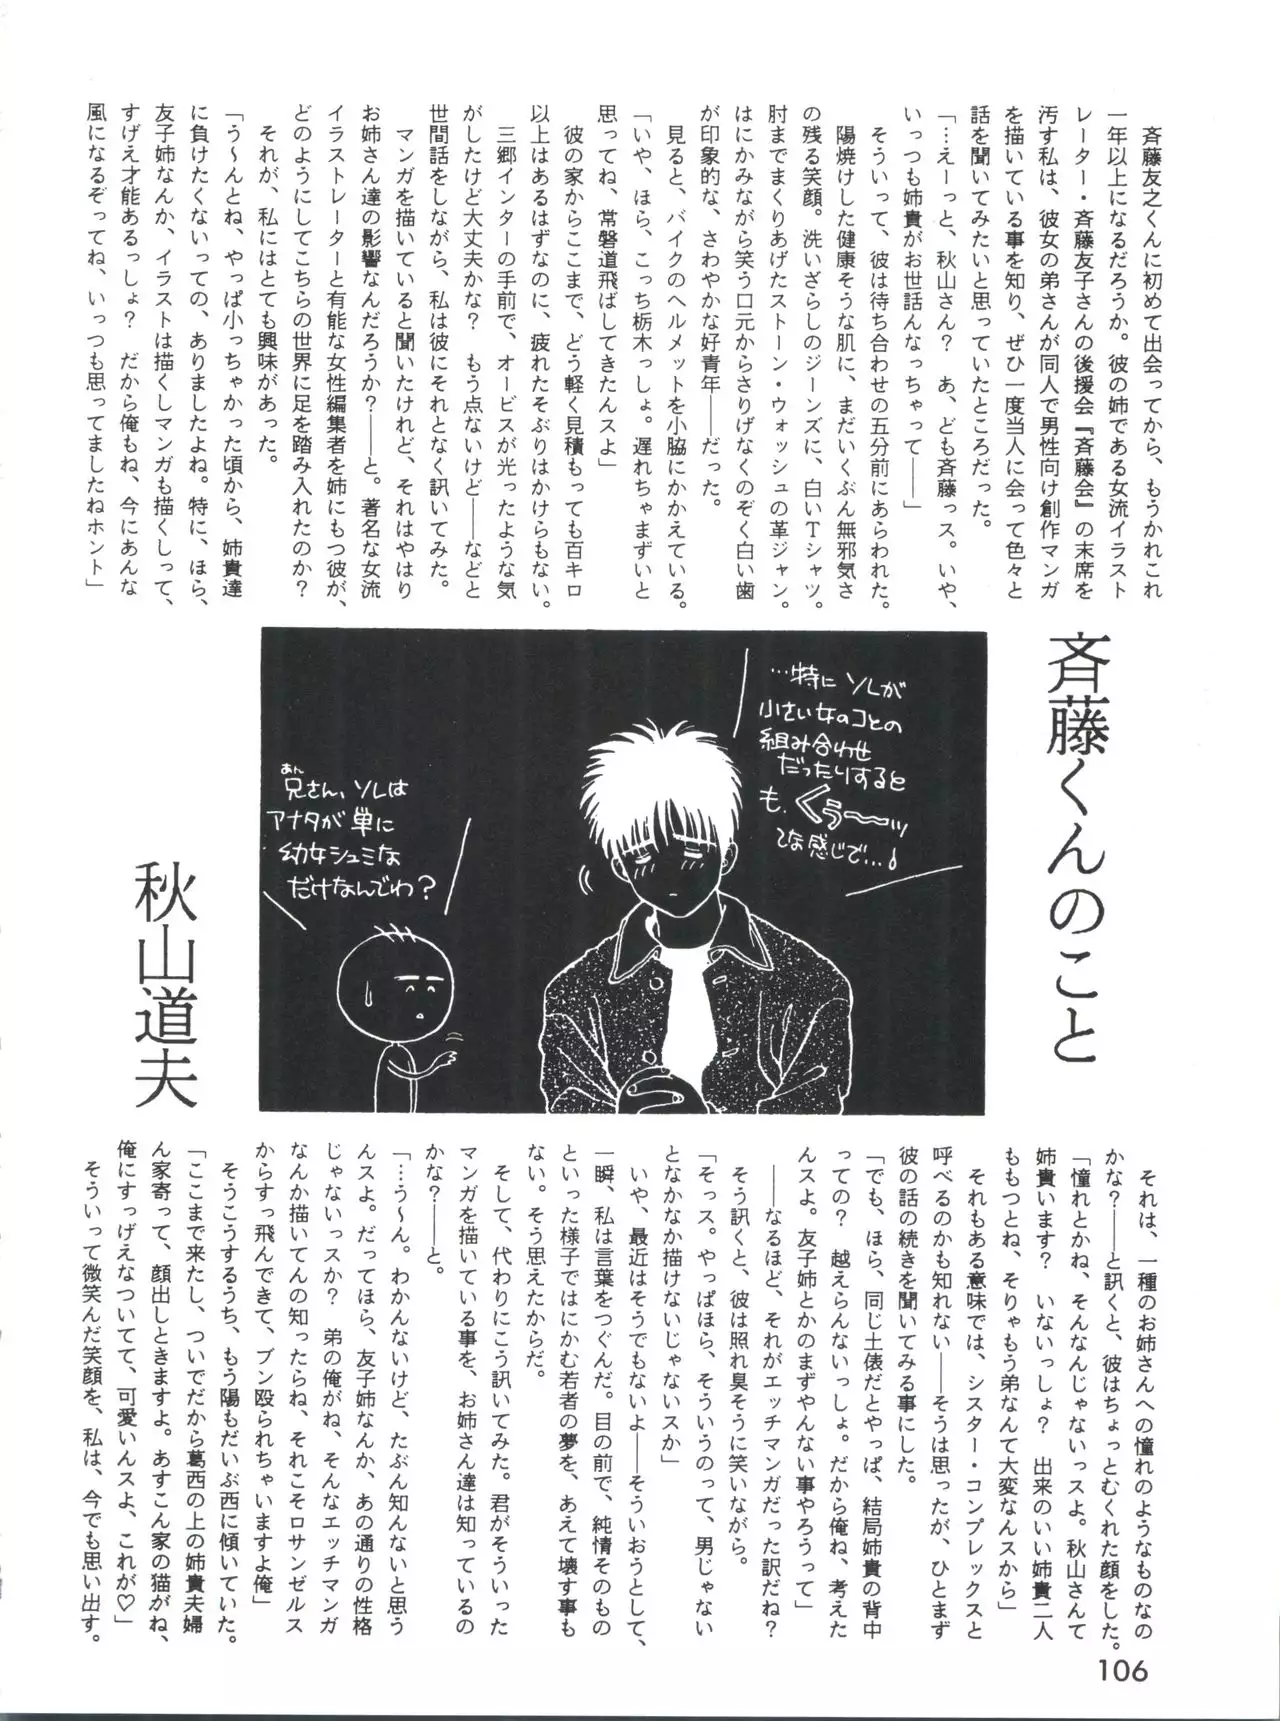 斉藤くんのこと
秋山道夫
斉藤友之くんに初めて出会ってから、もうかれこれ
一年以上になるだろうか。彼の姉である女流イラスト
レーター・斉藤友子さんの後援会『斉藤会』の末席を
汚す私は、彼女の弟さんが同人で男性向け創作マンガ
を描いている事を知り、ぜひ一度当人に会って色々と
話を聞いてみたいと思っていたところだった。
「…えーっと、秋山さん？　あ、ども斉藤っス。いや、
いっつも姉貴がお世話んなっちゃって――」
そういって、彼は待ち合わせの五分前にあらわれた。
陽焼けした健康そうな肌に、まだいくぶん無邪気さ
の残る笑顔。洗いざらしのジーンズに、白いTシャツ。
肘までまくりあげたストーン・ウォッシュの革ジャン。
はにかみながら笑う口元からさりげなくのぞく白い歯
が印象的な、さわやかな好青年――だった。
見ると、バイクのヘルメットを小脇にかかえている。
「いや、ほら、こっち栃木っしょ。遅れちゃまずいと
思ってね、常磐道飛ばしてきたんスよ」
彼の家からここまで、どう軽く見積もっても百キロ
以上はあるはずなのに、疲れたそぶりはかけらもない。
三郷インターの手前で、オービスが光ったような気
がしたけど大丈夫かな？　もう点ないけど――などと
世間話をしながら、私は彼にそれとなく訊いてみた。
マンガを描いていると聞いたけれど、それはやはり
お姉さん達の影響なんだろうか？――と。著名な女流
イラストレーターと有能な女性編集者を姉にもつ彼が、
どのようにしてこちらの世界に足を踏み入れたのか？
それが、私にはとても興味があった。
「う～んとね、やっぱ小っちゃかった頃から、姉貴達
に負けたくないっての、ありましたよね。特に、ほら、
友子姉なんか、イラストは描くしマンガも描くしって、
すげえ才能あるっしょ？　だから俺もね、今にあんな
風になるぞってね、いっつも思ってましたねホント」
…特にソレが
小さい女のコとの
組み合わせ
だったりすると
も、くぅ～～ッ
てな感じで…！
あん
兄さん、ソレは
アナタが単に
幼女シュミな
だけなんでわ？
それは、一種のお姉さんへの憧れのようなものなの
かな？――と訊くと、彼はちょっとむくれた顔をした。
「憧れとかね、そんなんじゃないっスよ。秋山さんて
姉貴います？　いないっしょ？　出来のいい姉貴二人
ももつとね、そりゃもう弟なんて大変なんスから」
それもある意味では、シスター・コンプレックスと
呼べるのかも知れない――そうは思ったが、ひとまず
彼の話の続きを聞いてみる事にした。
「でも、ほら、同じ土俵だとやっぱ、結局姉貴の背中
っての？　越えらんないっしょ。だから俺ね、考えた
んスよ。友子姉とかのまずやんない事やろうって」
――なるほど、それがエッチマンガだった訳だね？
そう訊くと、彼は照れ臭そうに笑いながら。
「そっス。やっぱほら、そういうのって、男じゃない
となかなか描けないじゃないスか」
いや、最近はそうでもないよ――そういおうとして、
一瞬、私は言葉をつぐんだ。目の前で、純情そのもの
といった様子ではにかむ若者の夢を、あえて壊す事も
ない。そう思えたからだ。
そして、代わりにこう訊いてみた。君がそういった
マンガを描いている事を、お姉さん達は知っているの
かな？――と。
「…う～ん。わかんないけど、たぶん知んないと思う
んスよ。だってほら、友子姉なんか、あの通りの性格
じゃないっスか？　弟の俺がね、そんなエッチマンガ
なんか描いてんの知ったらね、それこそロサンゼルス
からすっ飛んできて、ブン殴られちゃいますよ俺」
そうこうするうち、もう陽もだいぶ西に傾いていた。
「ここまで来たし、ついでだから葛西の上の姉貴夫婦
ん家寄って、顔出しときますよ。あすこん家の猫がね、
俺にすっげえなついてて、可愛いんスよ、これが♡」
そういって微笑んだ笑顔を、私は、今でも思い出す。
106